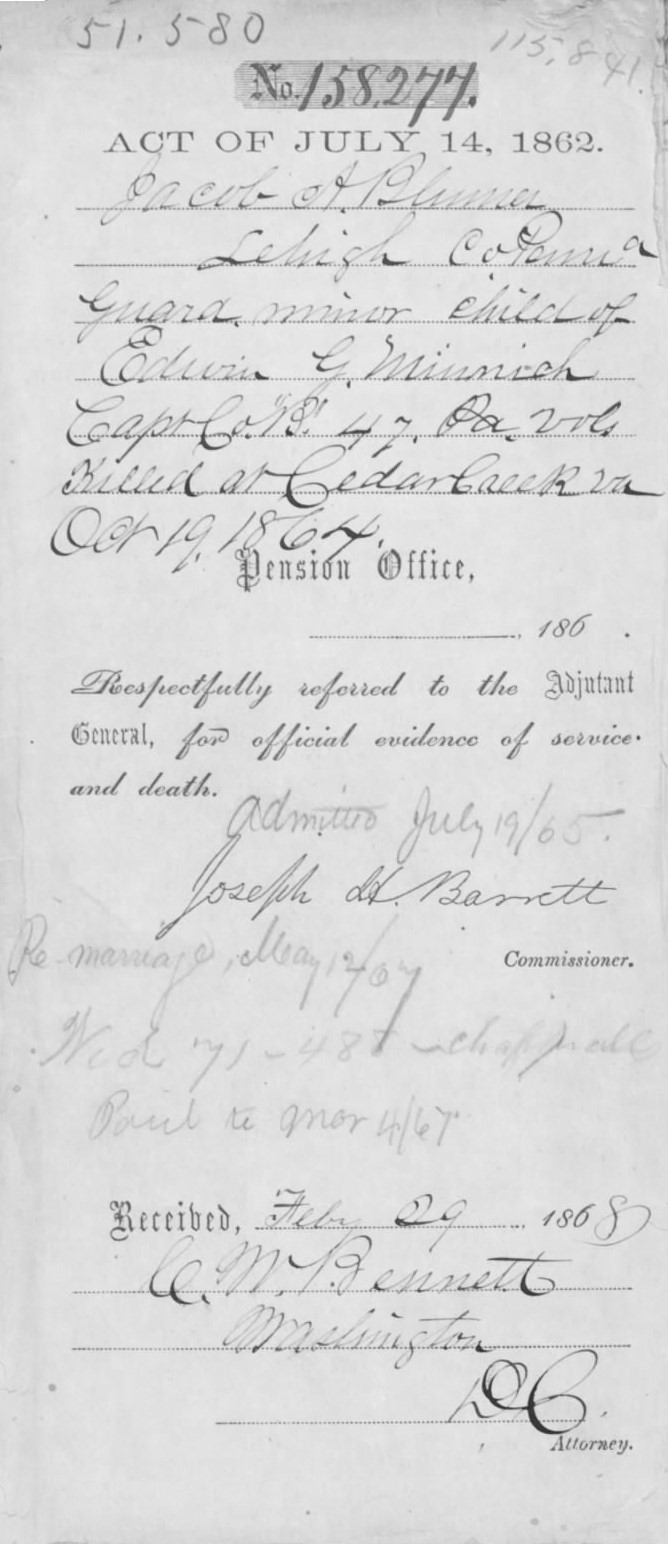 51.580
115,841.
No. 158,277.
ACT OF JULY 14, 1862.
Jacob A. Blumer
Lehigh Co Penn a
Guard. minor child of
Edwin G. Minnich
Capt Co. "B" 47. Pa. Vols
Killed at Cedar Creek Va
Oct 19, 1864.
Pension Office,
186 .
Respectfully referred to the Adjutant
General, for official evidence of service
and death.
Admitted July 19/65.
Joseph H. Barrett
Commissioner.
Re-marriage, May 12/67
Wid 71-488 -
Paid to Mar 4/67
Received, Feby 29 1868
C. W. Bennett
Washington
D C.
Attorney.